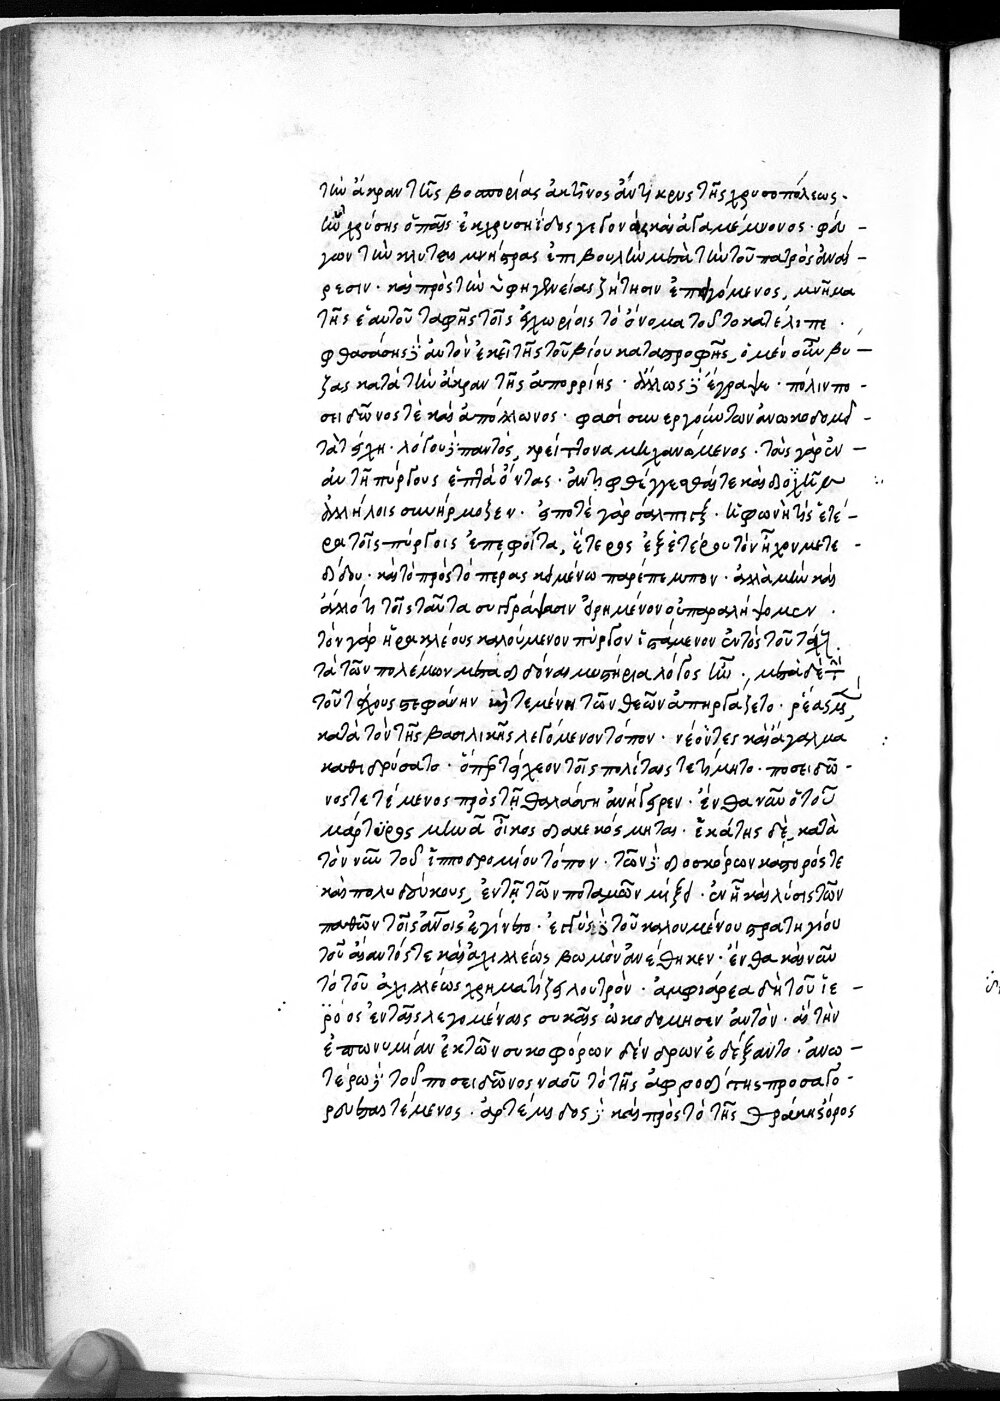 τὴν ἄκραν τῆς βοσπορίας ἀκτῖνος ἄντικρυς τῆς χρυσοπόλεως.
ἣν χρύσης ὁ παῖς ἐκ χρυσηΐδος γεγονὼς καὶ ἀγαμέμνονος· φεύ-
γων τὴν κλυταιμνήστρας ἐπιβουλὴν μετὰ τὴν τοῦ πατρὸς ἀναί-
ρεσιν· καὶ πρὸς τὴν ἰφιγενείας ζήτησιν ἐπειγόμενος, μνῆμα
τῆς ἑαυτοῦ ταφῆς τοῖς ἐγχωρίοις τὸ ὄνομα τοῦτο κατέλιπε.
φθασάσης δὲ αὐτὸν ἐκεῖ τῆς τοῦ βίου καταστροφῆς, ὁ μὲν οὖν βύ-
ζας κατὰ τὴν ἄκραν τῆς ἀπορρίης· ἄλλως δὲ ἔγραψε· πόλιν πο-
σειδῶνός τε καὶ ἀπόλλωνος· φασὶ συνεργούντων ἀνῳκοδόμει
τὰ τείχη· λόγου δὲ παντὸς, κρείττονα μηχανώμενος· τοὺς γὰρ ἐν
αὐτῇ πύργους ἑπτὰ ὄντας· ἀντιφθέγγεσθαί τε καὶ διηχεῖν
ἀλλήλοις συνήρμοζεν· εἴποτε γὰρ σάλπιγξ· ἢ φωνή τις ἑτέ-
ρα τοῖς πύργοις ἐπεφοίτα, ἕτερος ἐξ ἑτέρου τὸν ἦχον μετε-
δίδου· καὶ τὸ πρὸς τὸ πέρας κειμένῳ παρέπεμπον· ἀλλὰ μὴν καὶ
ἄλλο τι τοῖς ταῦτα συγγράψασιν εἰρημένον οὐ παραλήψομεν.
τὸν γὰρ ἡρακλέους καλούμενον πύργον ἱστάμενον ἐντὸς τοῦ τείχει
τὰ τῶν πολέμων μεταδιδόναι μυστήρια λόγος ἦν·, μετὰ δὲ τὴν
τοῦ τείχους στεφάνην καὶ τεμένη τῶν θεῶν ἀπηργάζετο· ῥέας μὲν
κατὰ τὸν τῆς βασιλικῆς λεγόμενον τόπον· νεών τε καὶ ἄγαλμα
καθιδρύσατο· ὅπερ τύχεον τοῖς πολίταις τετίμητο· ποσειδῶ-
νός τε τέμενος πρὸς τῇ θαλάσσῃ ἀνήγειρεν· ἔνθα νῦν ὁ τοῦ
μάρτυρος μηνᾶ οἶκος διακεκόσμηται· ἑκάτης δὲ, κατὰ
τὸν νῦν τοῦ ἱπποδρομίου τόπον· τῶν δὲ διοσκόρων κάστορός τε
καὶ πολυδεύκους, ἐν τῇ τῶν ποταμῶν μίξει· ἐν ᾗ καὶ λύσις τῶν
παθῶν τοῖς ἀνθρώποις ἐγίνετο· ἐγγὺς δὲ τοῦ καλουμένου στρατηγίου
τοῦ αἴαντός τε καὶ ἀχιλλέως βωμὸν ἀνέθηκεν· ἔνθα καὶ νῦν
τὸ τοῦ ἀχιλλέως χρηματίζει λουτρὸν· ἀμφιάρεα δὴ τοῦ ἱε-
ρὸος ἐν ταῖς λεγομέναις συκαῖς ᾠκοδόμησεν αὐτὸν· αἳ τὴν
ἐπωνυμίαν ἐκ τῶν συκοφόρων δένδρων ἐδέξαντο· ἀνω-
τέρω δὲ τοῦ ποσειδῶνος ναοῦ τὸ τῆς ἀφροδίτης προσαγο-
ρεύεται τέμενος· ἀρτέμιδος δὲ καὶ πρὸς τὸ τῆς θράκης ὄρος